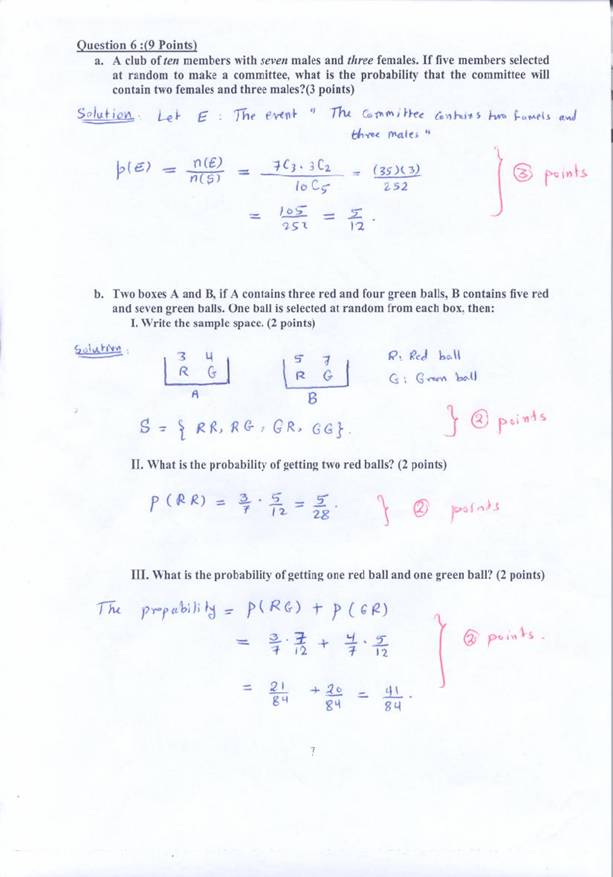 Question 6 :(9 Points)
a. A club of ten members with seven males and three females. If five members selected
at random to make a committee, what is the probability that the committee will
contain two females and three males?(3 points)
Solution: Let E : The event " The Committee contains two famels and
three males "
p(E) = n(E)/n(S) = 7C3 · 3C2 / 10C5 = (35)(3)/252
} ③ points
= 105/252 = 5/12 .
b. Two boxes A and B, if A contains three red and four green balls, B contains five red
and seven green balls. One ball is selected at random from each box, then:
I. Write the sample space. (2 points)
Solution:
3 4 5 7 R: Red ball
R G R G G: Green ball
A B
S = { RR, RG, GR, GG}. } ② points
II. What is the probability of getting two red balls? (2 points)
P(RR) = 3/7 · 5/12 = 5/28 . } ② points
III. What is the probability of getting one red ball and one green ball? (2 points)
The propability = P(RG) + P(GR)
= 3/7 · 7/12 + 4/7 · 5/12 } ② points.
= 21/84 + 20/84 = 41/84 .
7